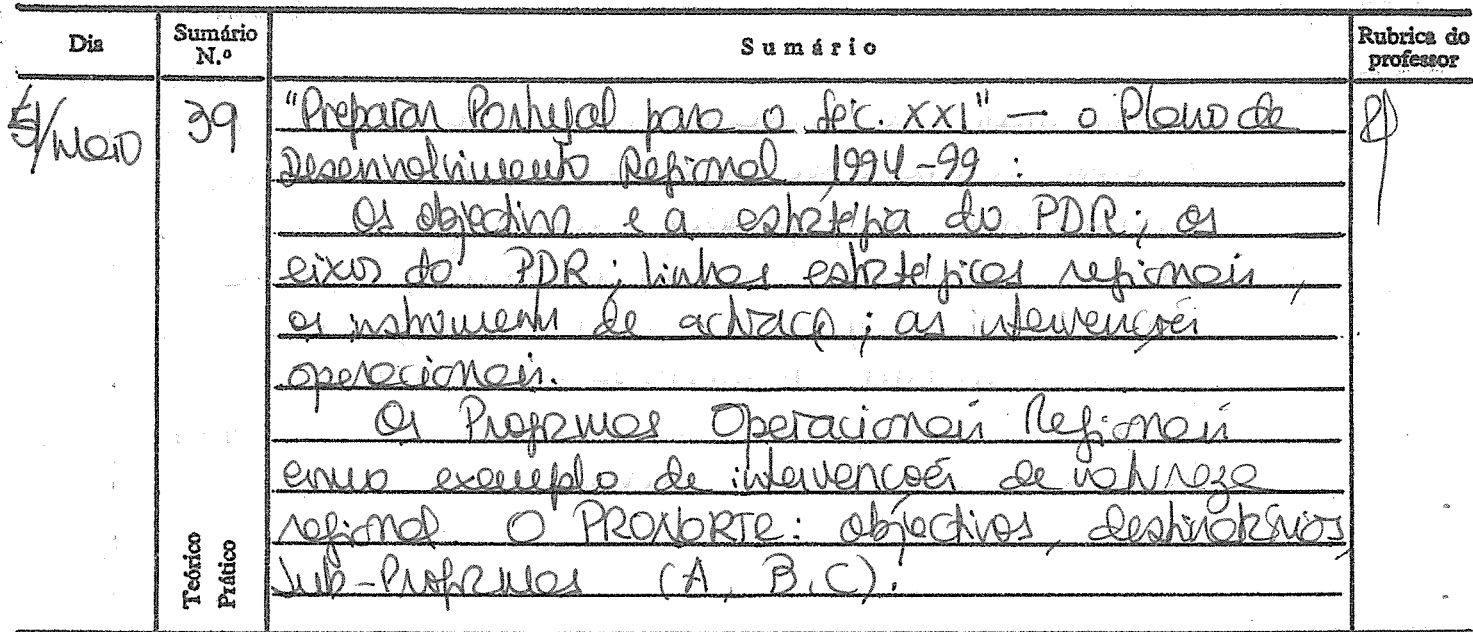 Dia Sumário N.º Sumário Rubrica do professor
/Maio 39 "Preparar Portugal para o séc. XXI" — o Plano de
Desenvolvimento Regional 1994-99 :
Os objectivos e a estratégia do PDR; os
eixos do PDR; linhas estratégicas regionais,
os instrumentos de actuação; as intervenções
operacionais.
Os Programas Operacionais Regionais
como exemplo de intervenções de natureza
regional O PRONORTE: objectivos, destinatários,
Sub-Programas (A, B, C).
Teórico
Prático